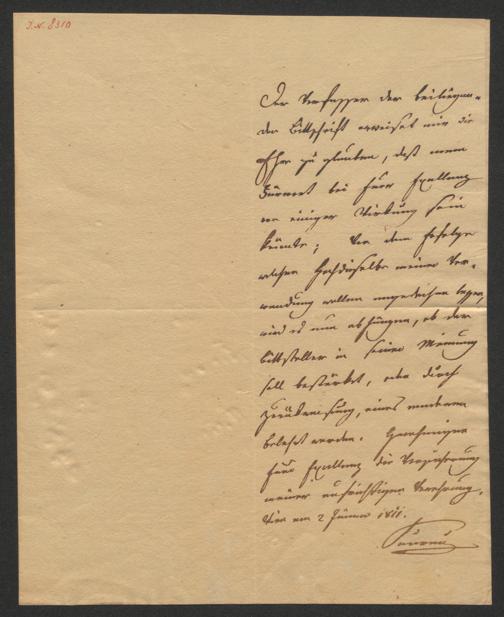 I.N. 8310
Der Verfasser der beiliegen-
den Bittschrift erweiset mir die
Ehre zu glauben, daß mein
Fürwort bei Euer Exellenz
von einiger Wirkung sein
könnte; Von dem Erfolge
welchen Hochdieselbe meiner Ver-
wendung wollen angedeihen lassen,
wird es nun abhängen, ob der
Bittsteller in seiner Meinung
soll bestärket, oder durch
Zurückweisung, eines anderen
belehrt werden. Genehmigen
Euer Exellenz die Versicherung
meiner aufrichtigen Verehrung.
Wien am 2 Jänner 1811.
Saurau